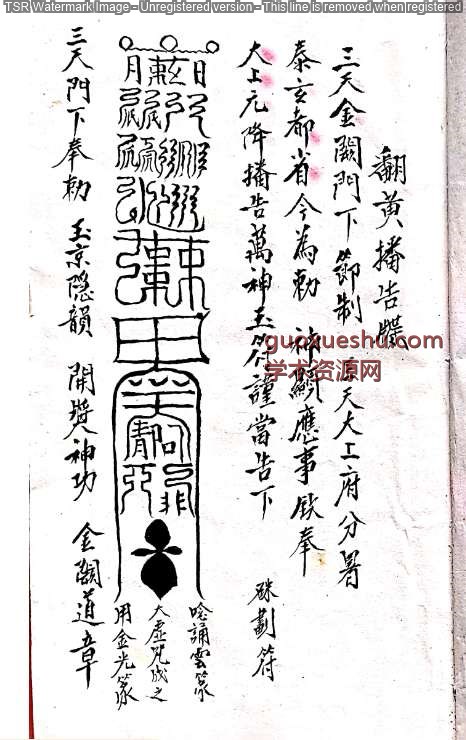 TSR Watermark Image - Unregistered version - This line is removed when registered
翻黄播告牒
三天金闕門下 節制 昊天大上府分署
泰玄都省今為勅 神顯應事欽奉
大上元降播告萬神玉符謹當告下
硃劃符
唸誦雲篆
大虛咒成之
用金光篆
三天門下奉勅 玉京隐韻 開奬神功 金闕道章
guoxueshu.com
学术资源网
TSR Watermark Image - Unregistered version - This line is removed when registered